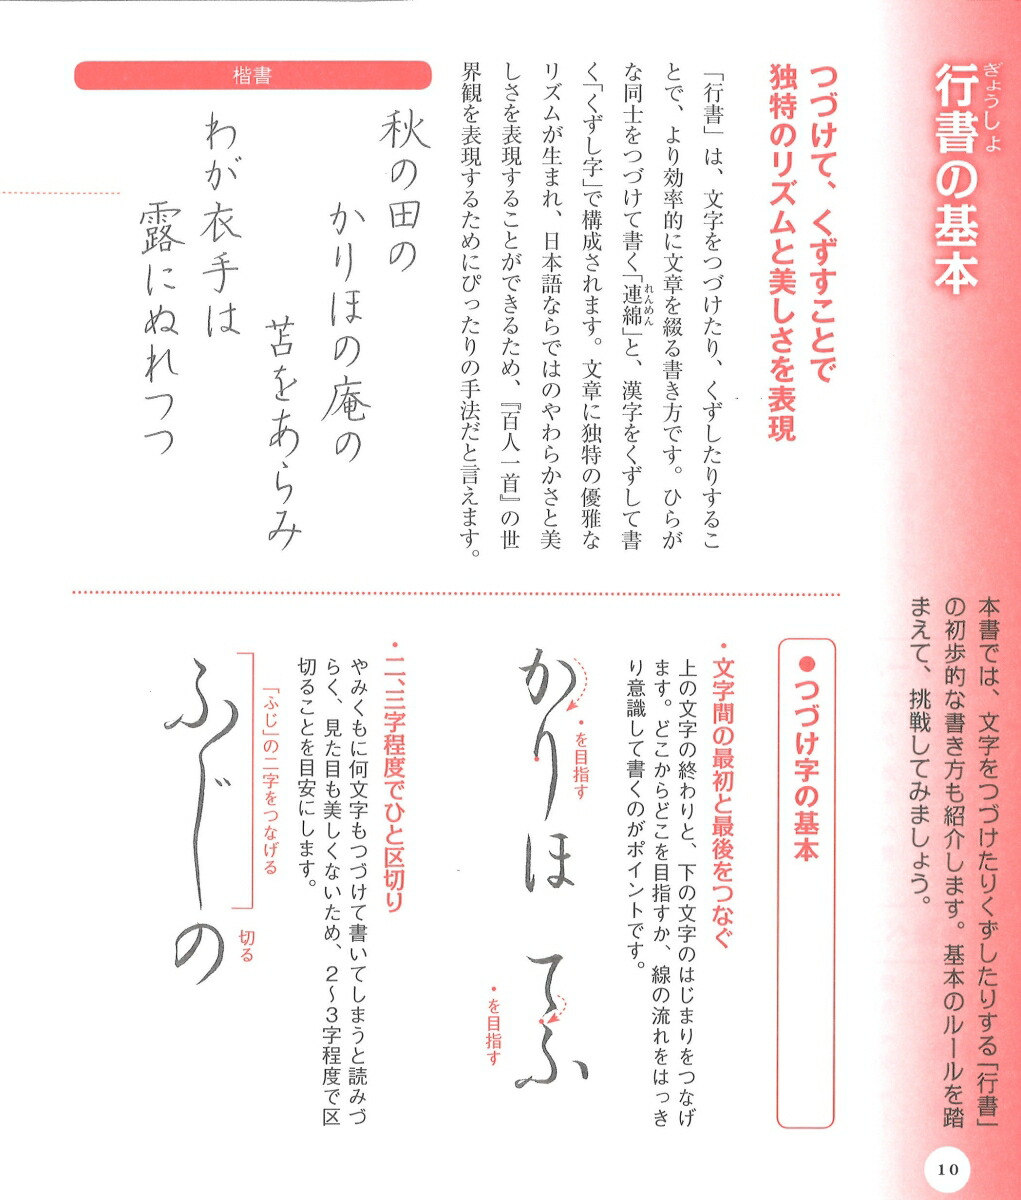 ぎょうしょ
行書の基本
本書では、文字をつづけたりくずしたりする「行書」
の初歩的な書き方も紹介します。基本のルールを踏
まえて、挑戦してみましょう。
つづけて、くずすことで
独特のリズムと美しさを表現
「行書」は、文字をつづけたり、くずしたりするこ
とで、より効率的に文章を綴る書き方です。ひらが
な同士をつづけて書く「連綿」と、漢字をくずして書
れんめん
く「くずし字」で構成されます。文章に独特の優雅な
リズムが生まれ、日本語ならではのやわらかさと美
しさを表現することができるため、『百人一首』の世
界観を表現するためにぴったりの手法だと言えます。
楷書
秋の田の
かりほの庵の
苫をあらみ
わが衣手は
露にぬれつつ
●つづけ字の基本
・文字間の最初と最後をつなぐ
上の文字の終わりと、下の文字のはじまりをつなげ
ます。どこからどこを目指すか、線の流れをはっき
り意識して書くのがポイントです。
かりほ
・を目指す
てふ
・を目指す
・二、三字程度でひと区切り
やみくもに何文字もつづけて書いてしまうと読みづ
らく、見た目も美しくないため、2〜3字程度で区
切ることを目安にします。
「ふじ」の二字をつなげる
切る
ふじの
10